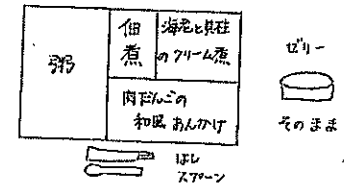 粥
佃
煮
海老と貝柱
のクリーム煮
肉だんごの
和風あんかけ
ゼリー
そのまま
はし
スプーン